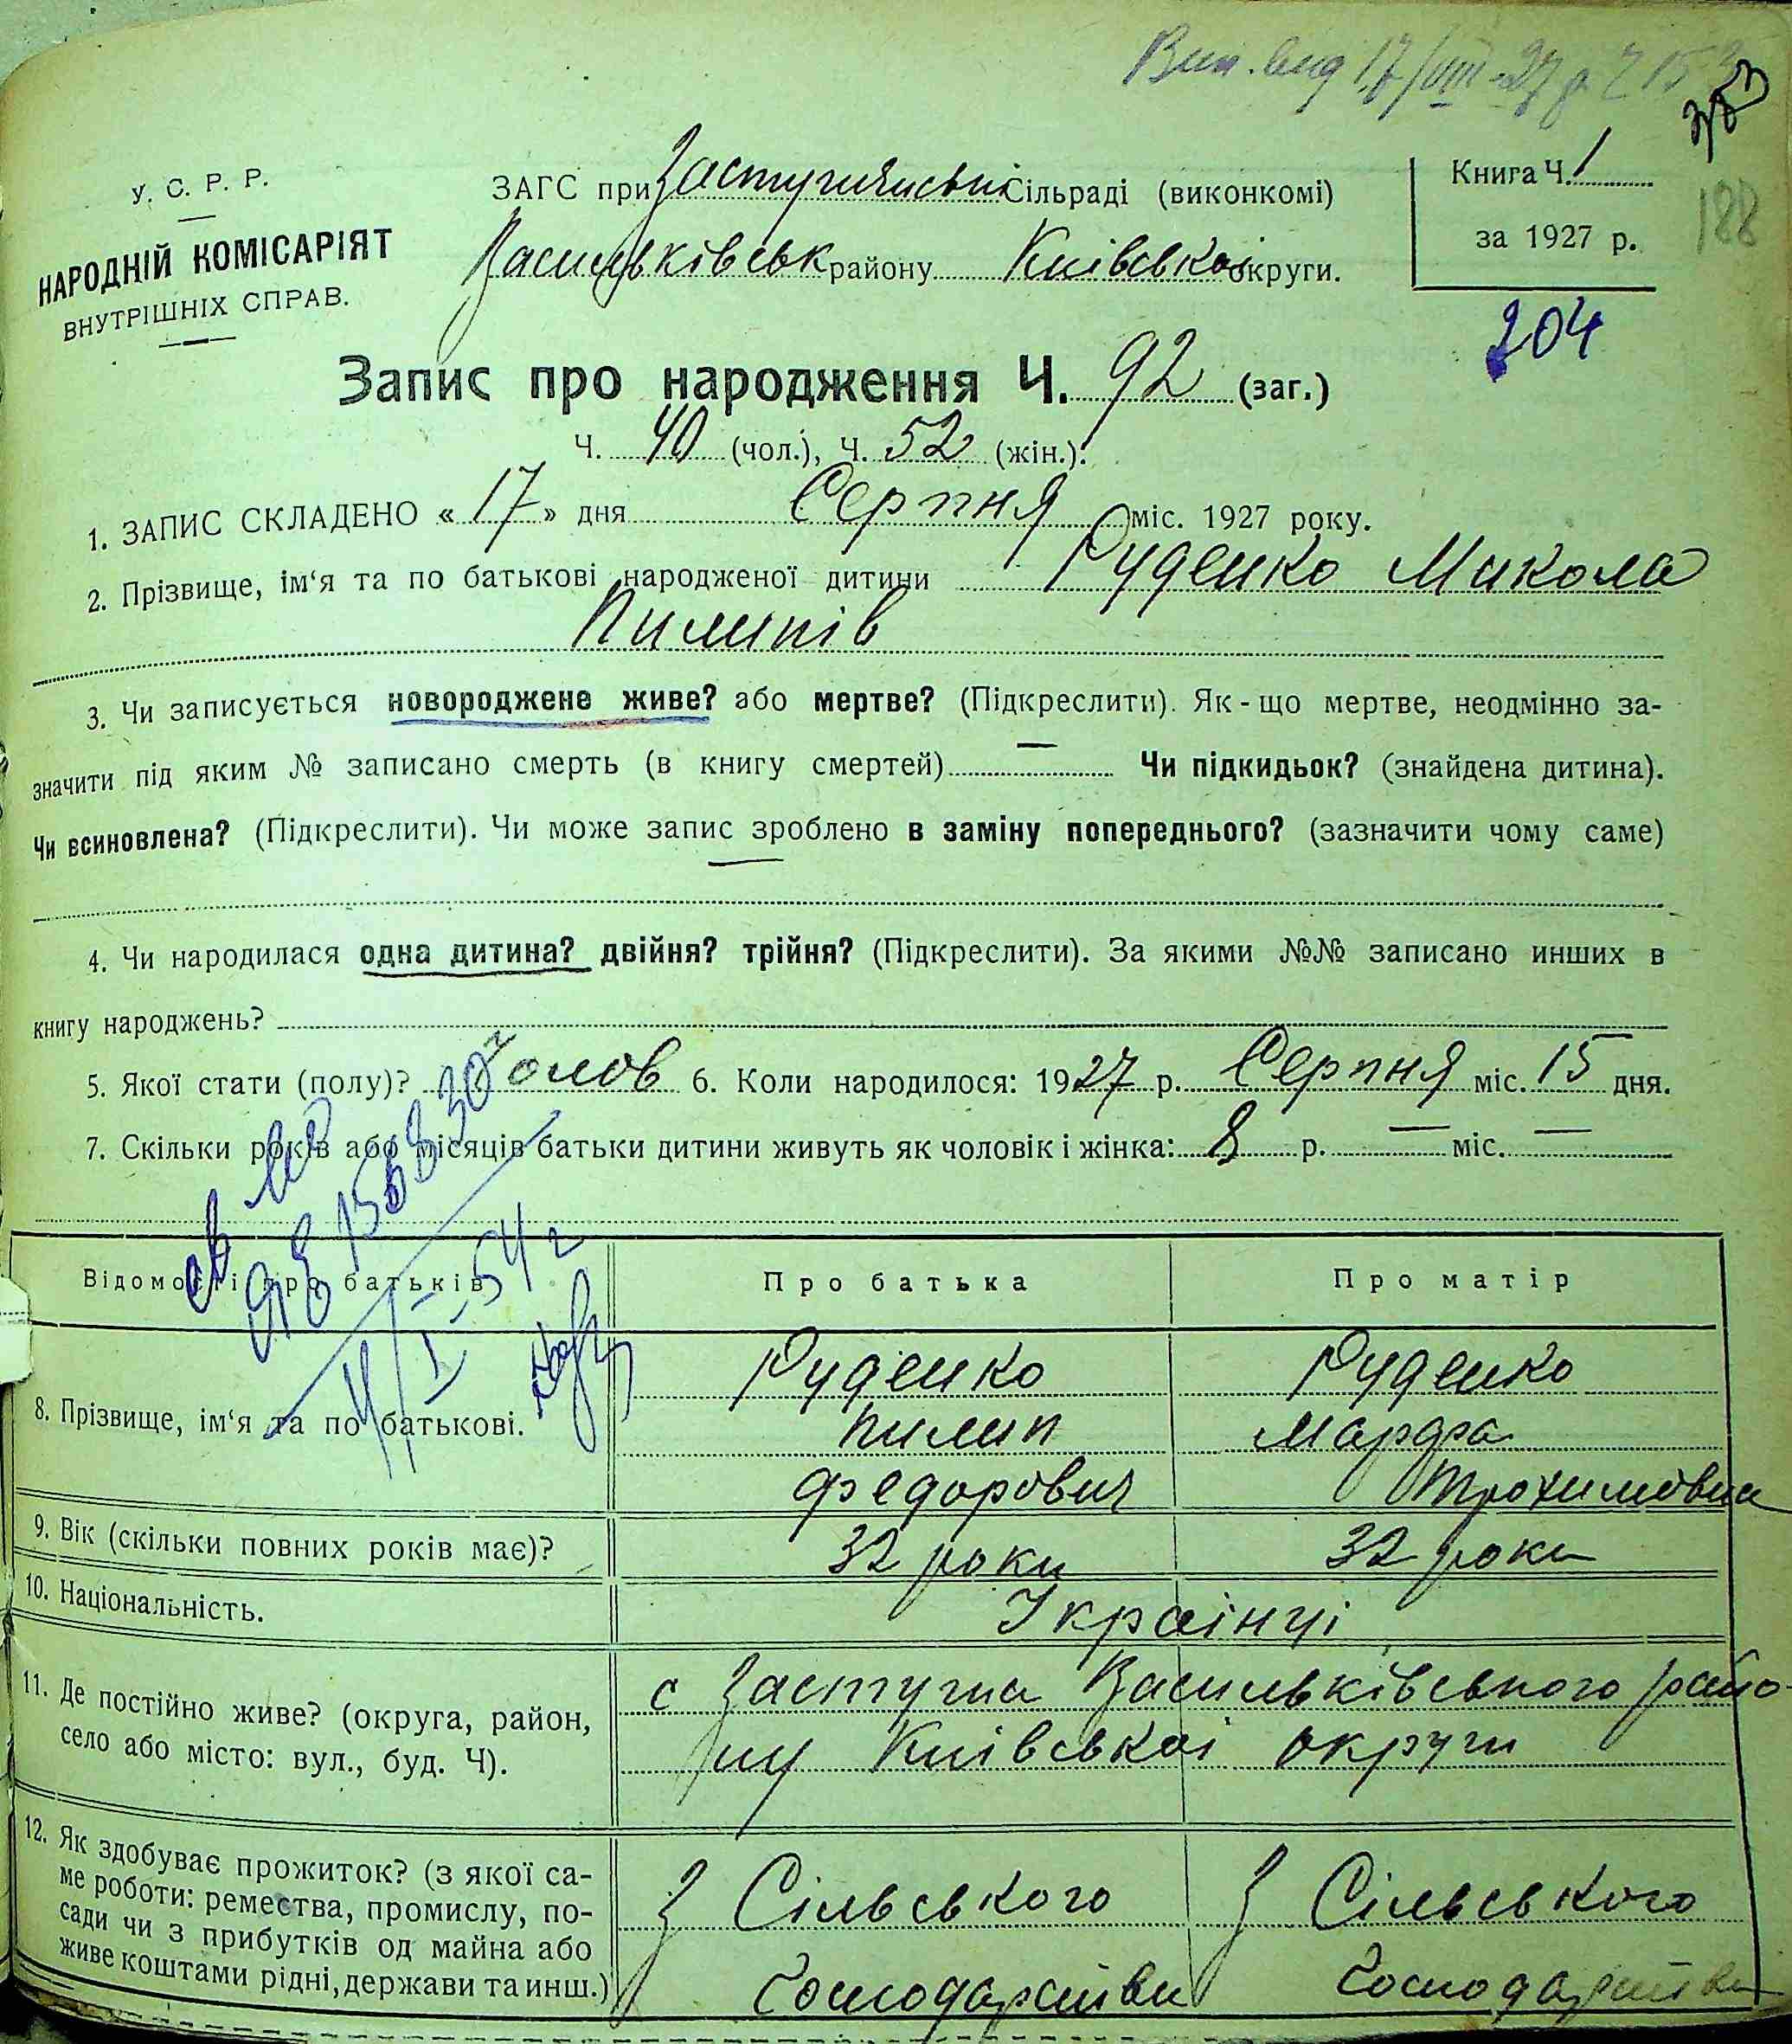 Вип. вид 17/VIII-27 р. Ч 153
У. С. Р. Р.
НАРОДНІЙ КОМІСАРІЯТ
ВНУТРІШНІХ СПРАВ.
ЗАГС при Застугнянській Сільраді (виконкомі)
Васильківськ району Київської округи.
Книга Ч. 1
за 1927 р.
188
204
Запис про народження Ч. 92 (заг.)
Ч. 40 (чол.), Ч. 52 (жін.).
1. ЗАПИС СКЛАДЕНО « 17 » дня Серпня міс. 1927 року.
2. Прізвище, ім‘я та по батькові народженої дитини Руденко Микола
Пилипів
3. Чи записується новороджене живе? або мертве? (Підкреслити). Як-що мертве, неодмінно за-
значити під яким № записано смерть (в книгу смертей) — Чи підкидьок? (знайдена дитина).
Чи всиновлена? (Підкреслити). Чи може запис зроблено в заміну попереднього? (зазначити чому саме)
—
4. Чи народилася одна дитина? двійня? трійня? (Підкреслити). За якими №№ записано инших в
книгу народжень?
5. Якої стати (полу)? Чолов 6. Коли народилося: 1927 р. Серпня міс. 15 дня.
7. Скільки років або місяців батьки дитини живуть як чоловік і жінка: 8 р. — міс. —
Відомості про батьків Про батька Про матір
4/I-54 г
8. Прізвище, ім‘я та по батькові.
Руденко Руденко
Пилип Марфа
Федорович Трохимовна
9. Вік (скільки повних років має)? 32 роки 32 роки
10. Національність. Українці
11. Де постійно живе? (округа, район,
село або місто: вул., буд. Ч).
с Застугна Васильківського райо-
ну Київської округи
12. Як здобуває прожиток? (з якої са-
ме роботи: ремества, промислу, по-
сади чи з прибутків од майна або
живе коштами рідні, держави та инш.)
З Сільського З Сільського
Господарства Господарства